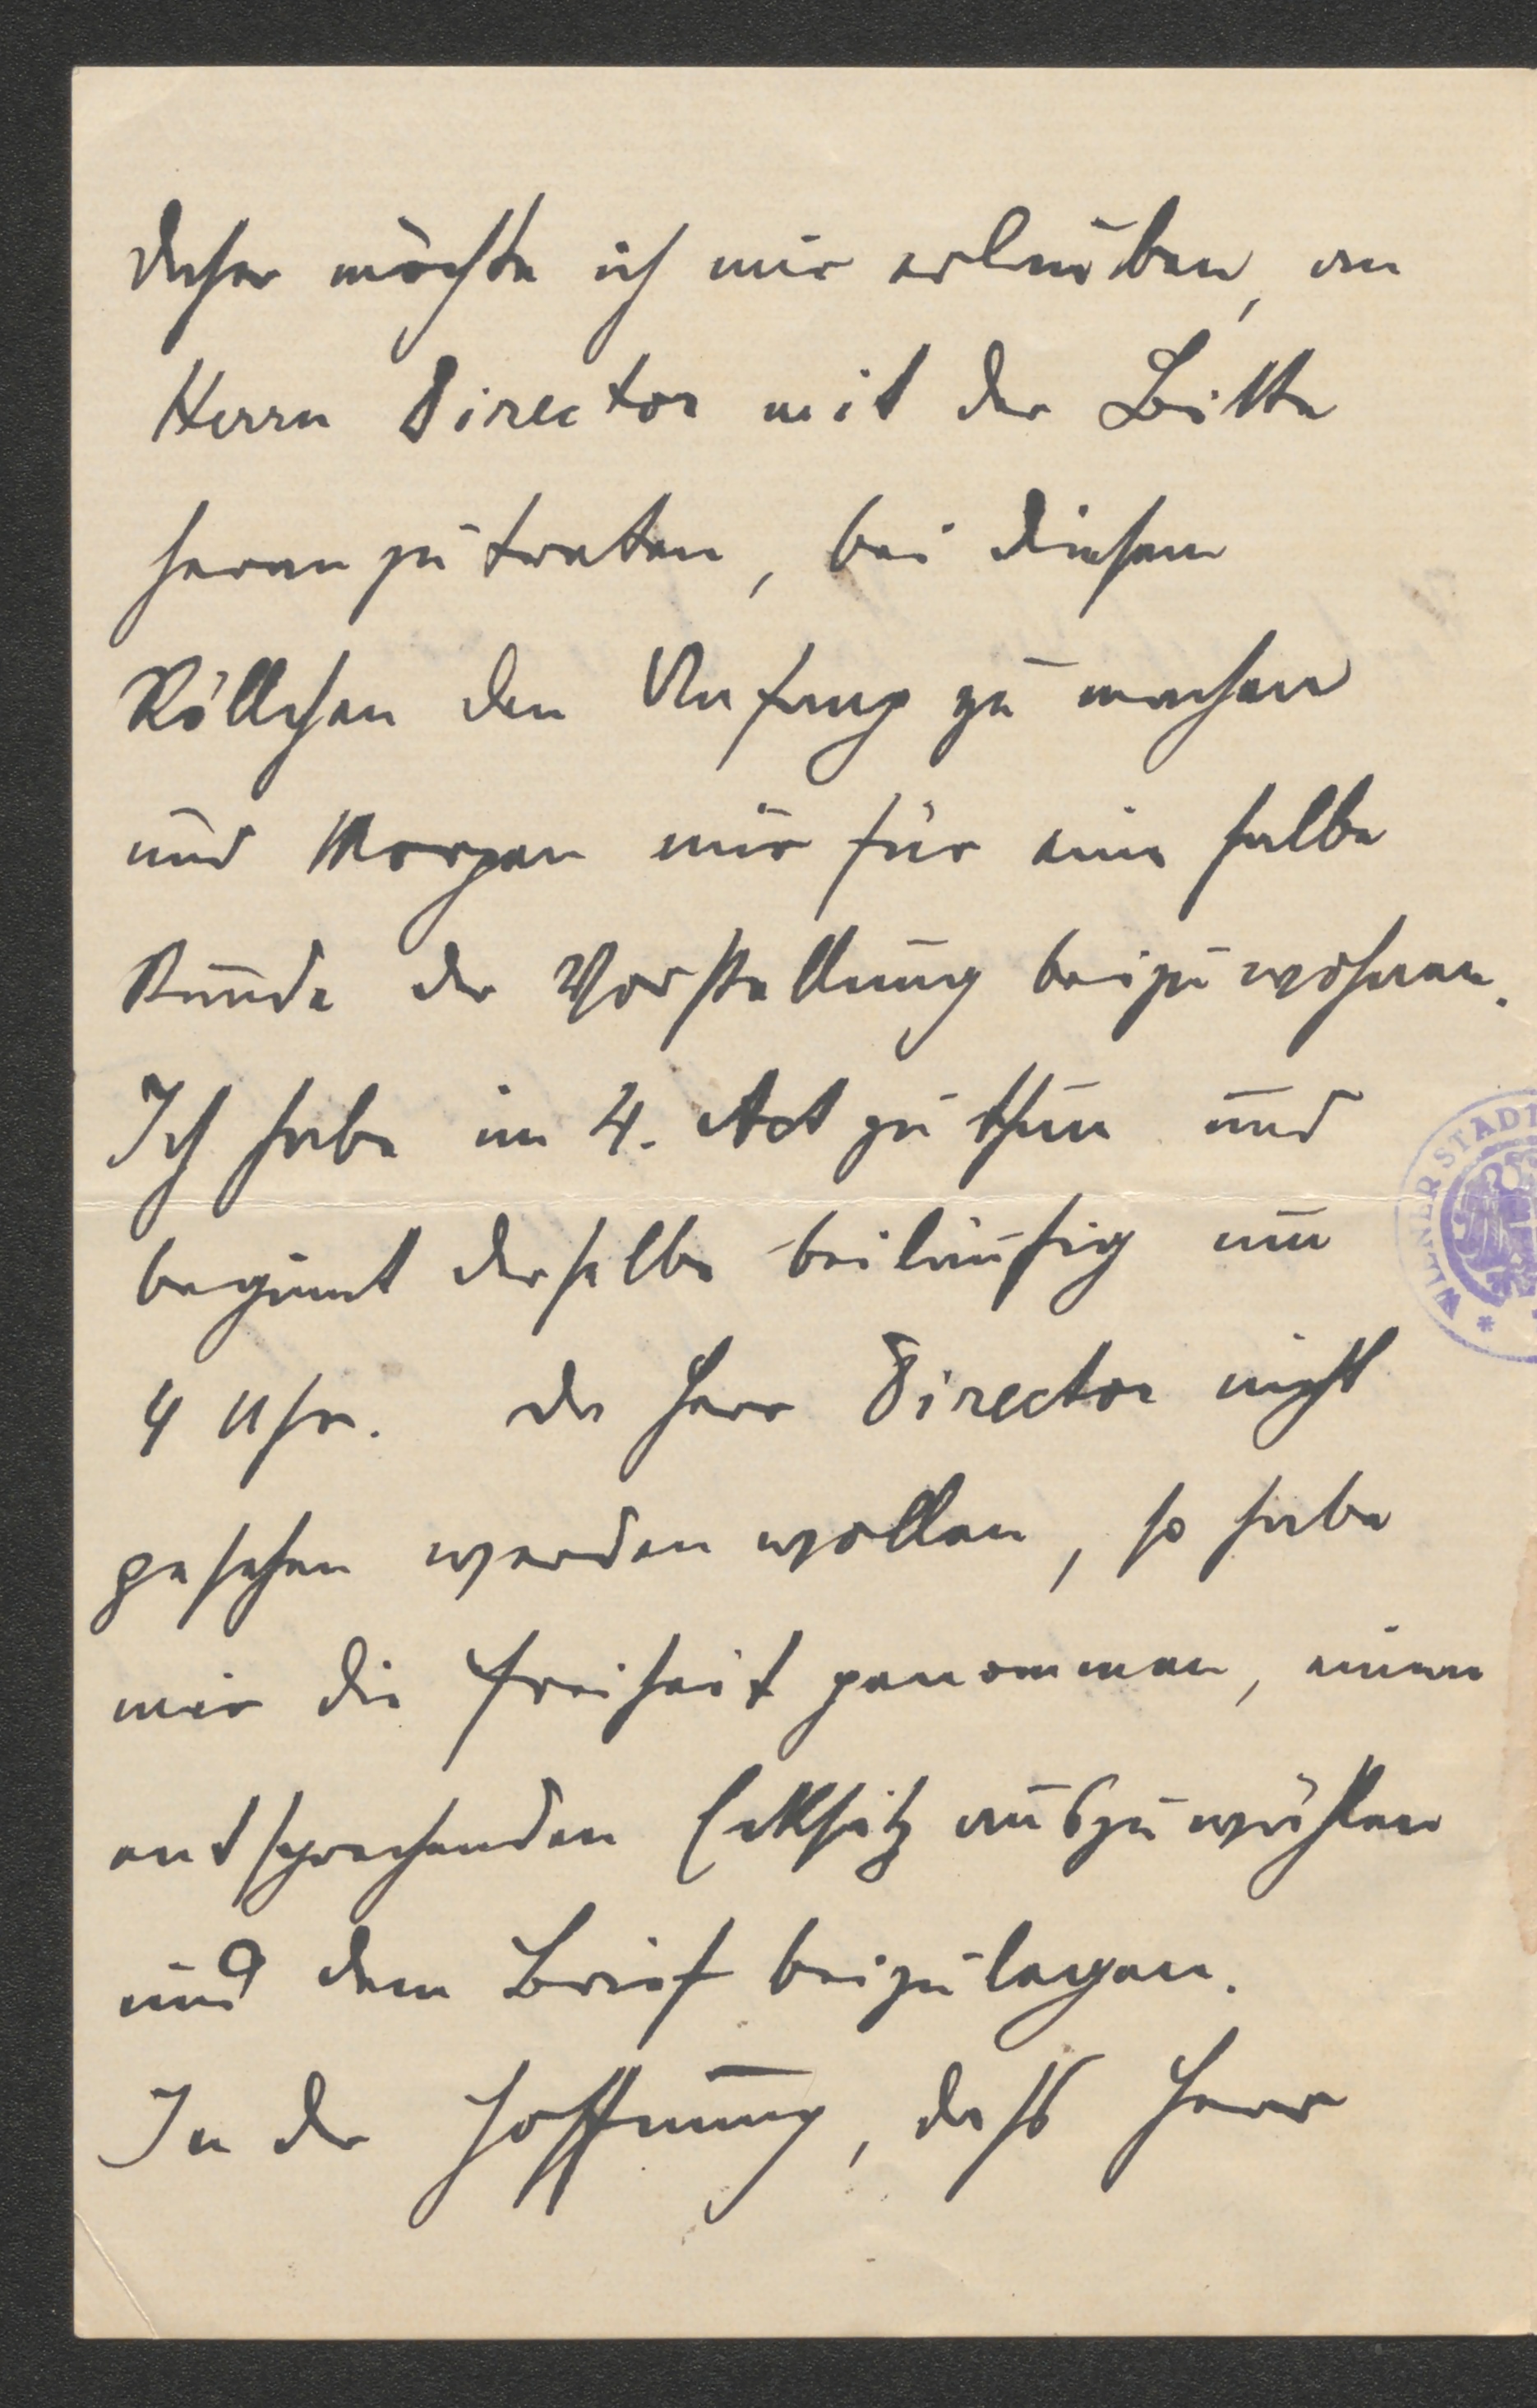 daher möchte ich mir erlauben, an
Herrn Director mit der Bitte
heranzutreten, bei diesem
Röllchen den Anfang zu machen
und Morgen mir für eine halbe
Stunde der Vorstellung beizuwohnen.
Ich habe im 4. Act zu thun und
beginnt derselbe beiläufig um
4 Uhr. Da Herr Director nicht
gesehen werden wollen, so habe
mir die Freiheit genommen, einen
entsprechenden Ecksitz auszuwählen
und dem Brief beizulegen.
In der Hoffnung, dass Herr
WIENER STADT